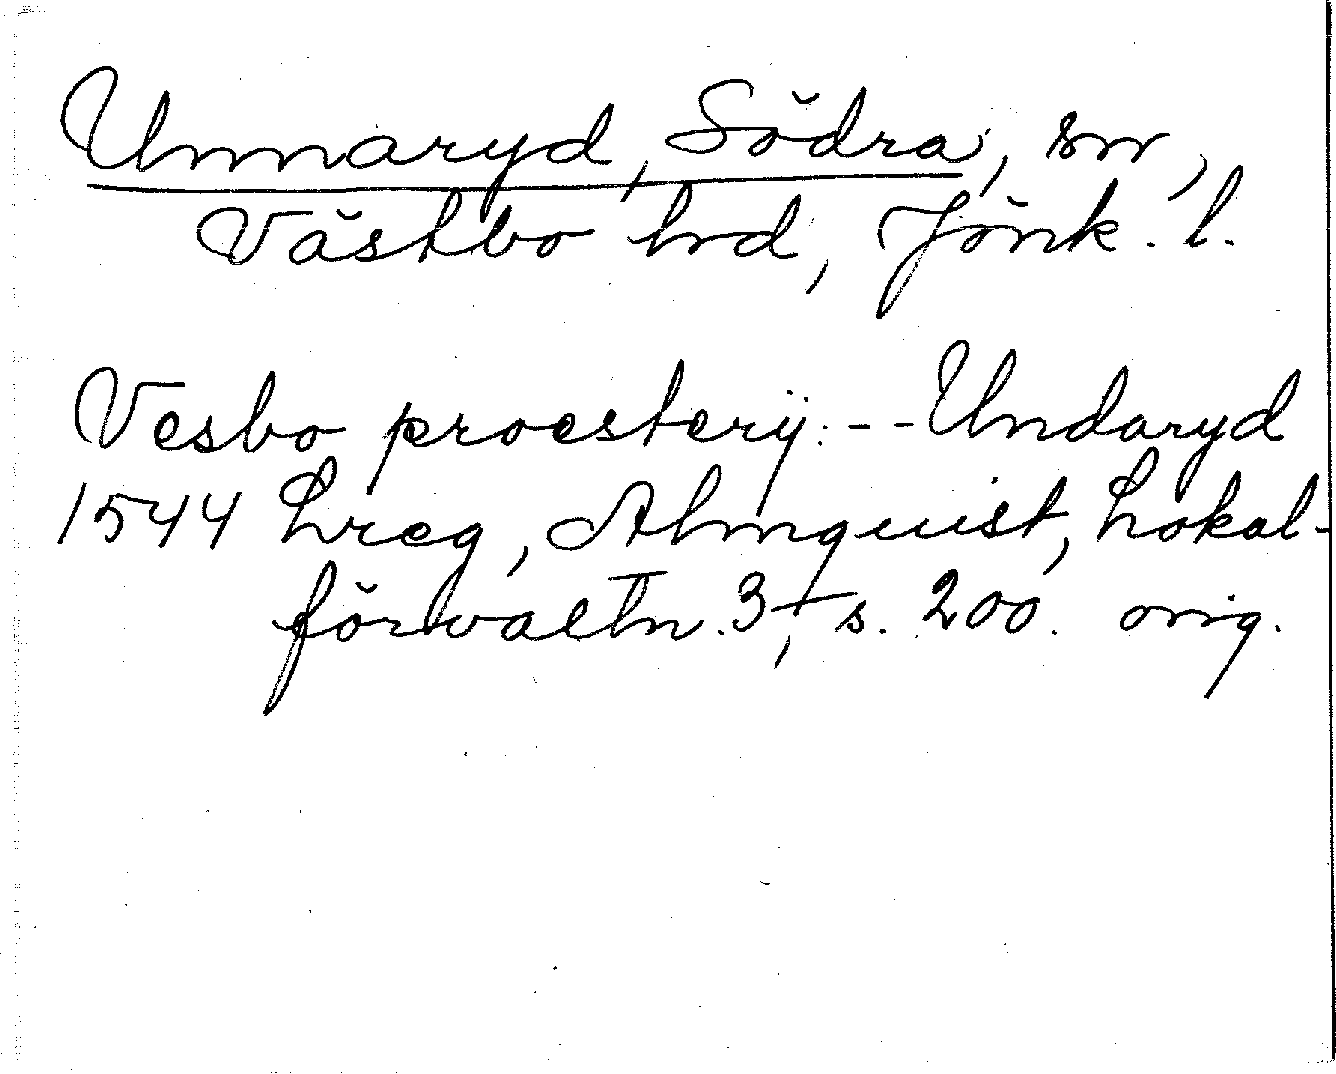 Unnaryd, Södra, sn,
Västbo hd, Jönk. l.
Vesbo proesterij: -- Undaryd
1544 Lreg, Almquist, Lokal-
förvaltn. 3, s. 200. orig.